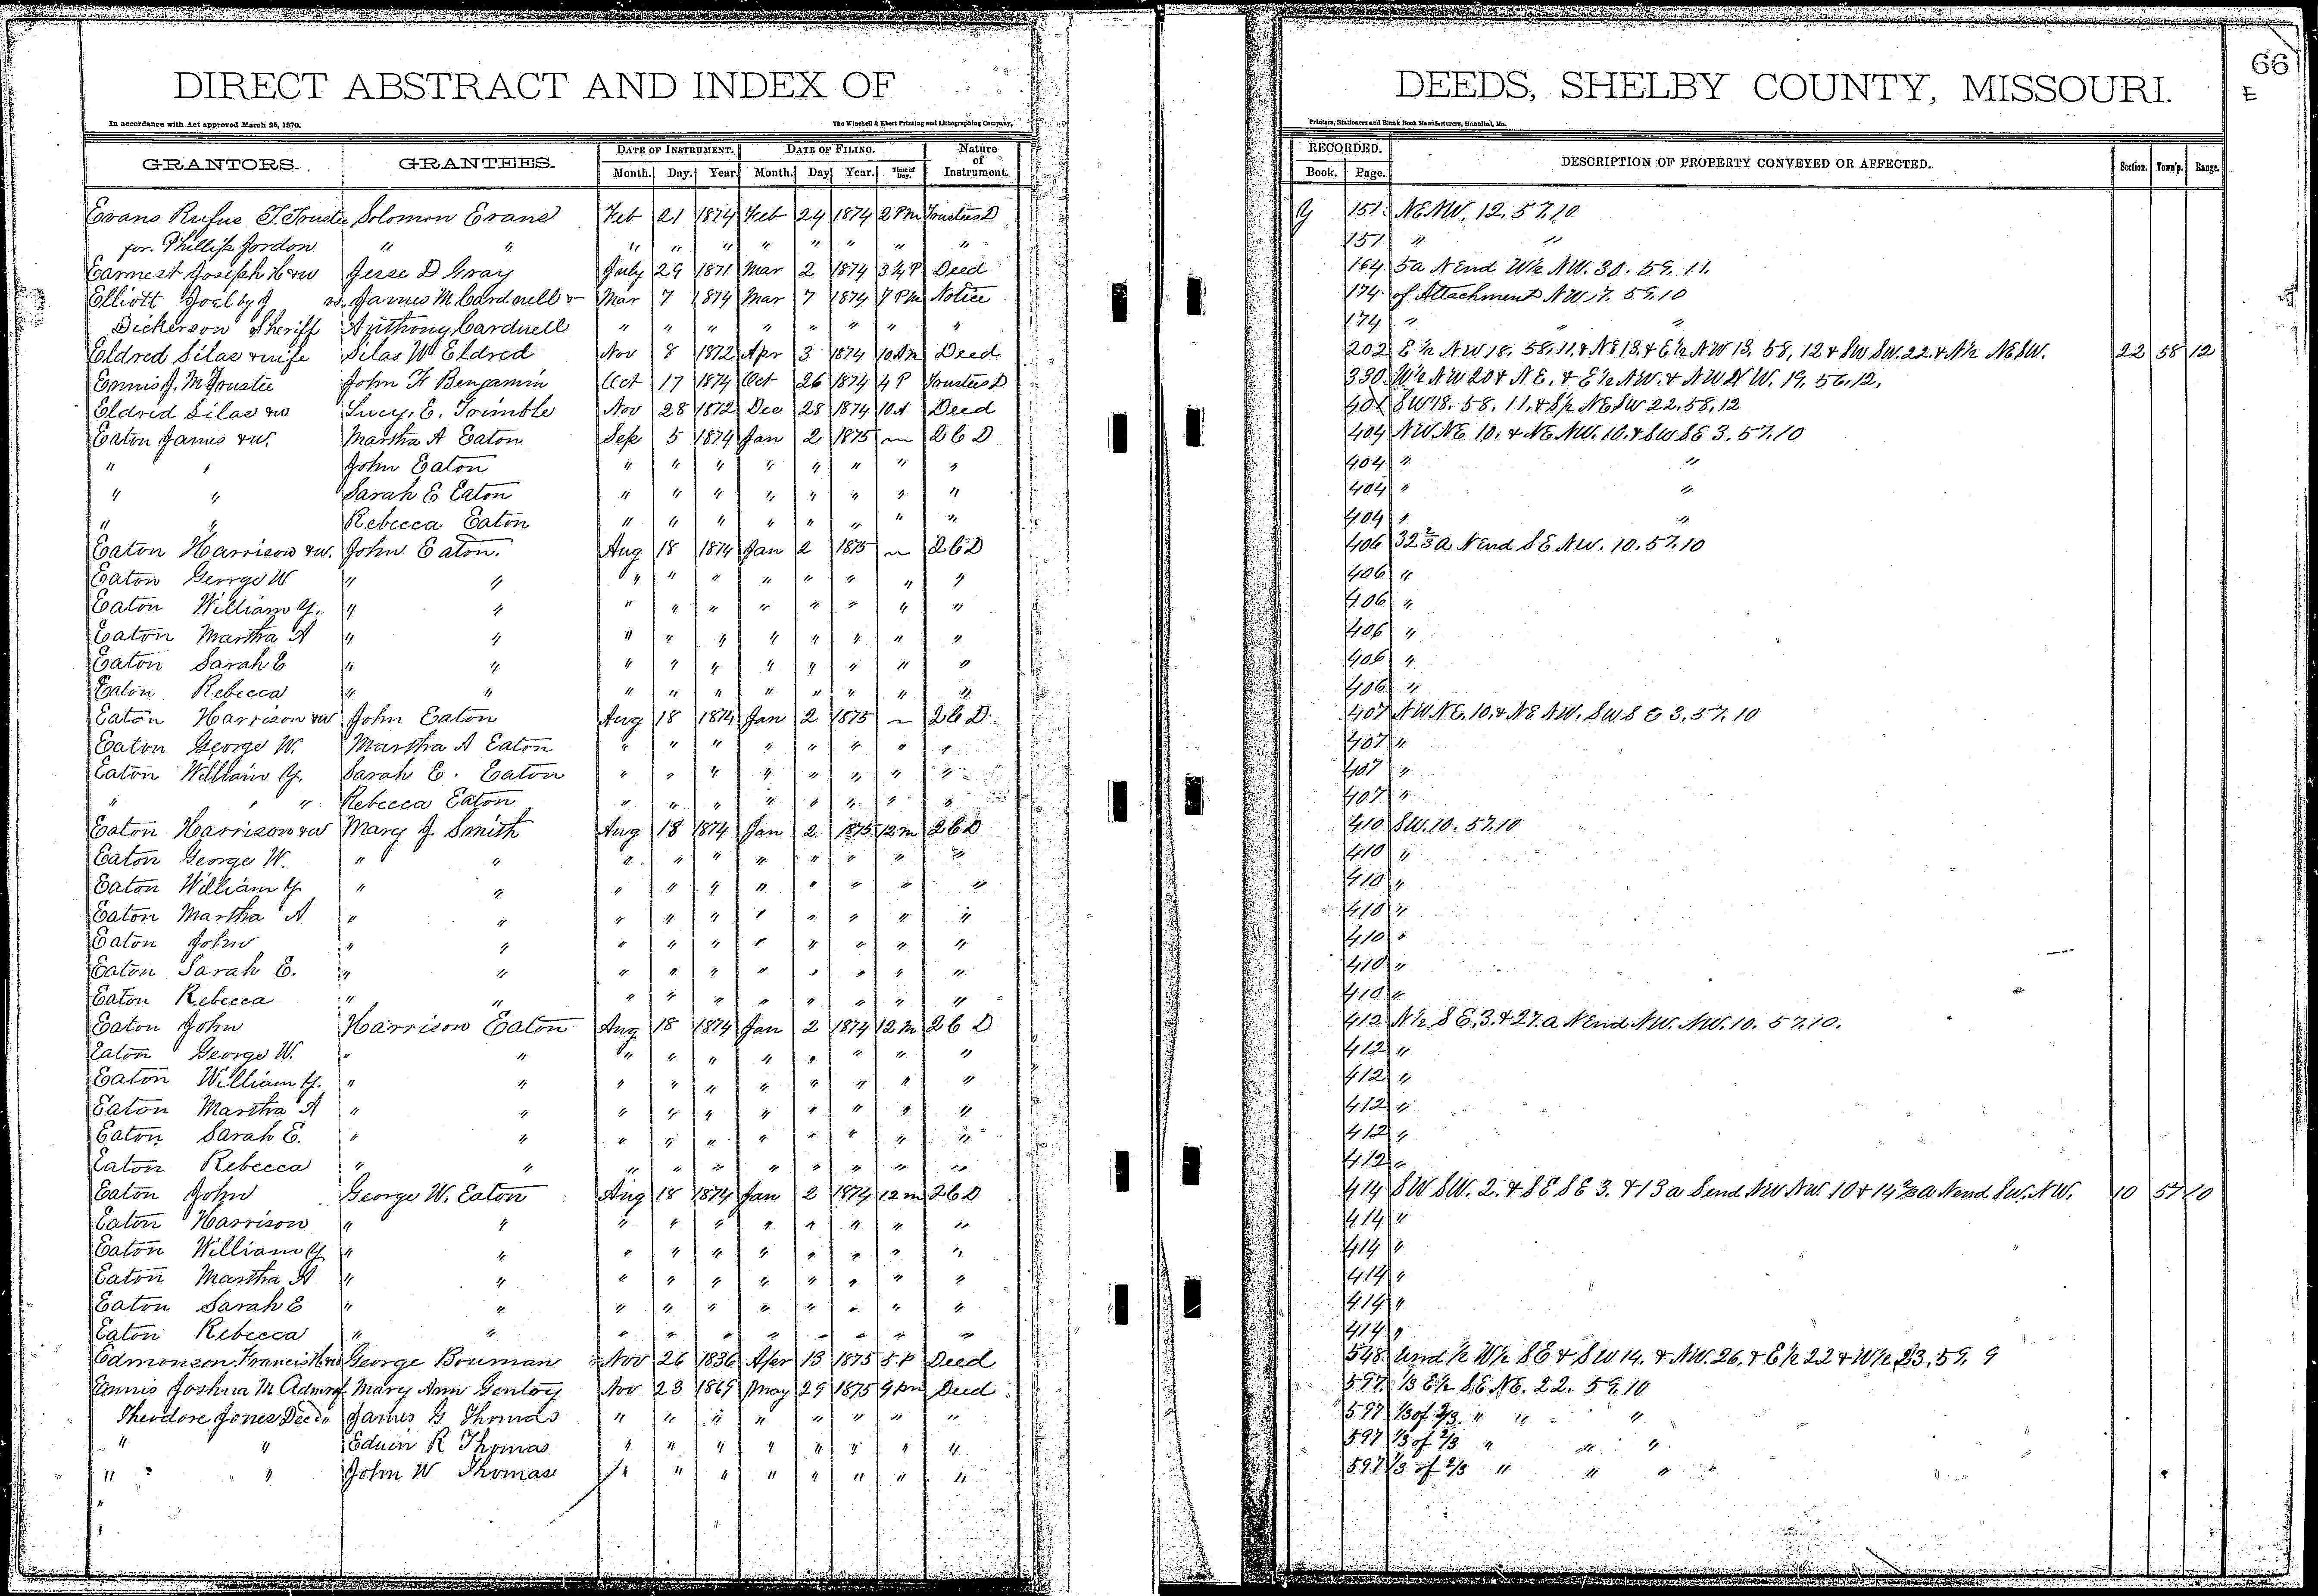 DIRECT ABSTRACT AND INDEX OF DEEDS, SHELBY COUNTY, MISSOURI. 66
E
In accordance with Act approved March 25, 1870. The Winchell & Ebert Printing and Lithographing Company, Printers, Stationers and Blank Book Manufacturers, Hannibal, Mo.
GRANTORS. GRANTEES. DATE OF INSTRUMENT. DATE OF FILING. Nature of Instrument. RECORDED. DESCRIPTION OF PROPERTY CONVEYED OR AFFECTED. Section. Town'p. Range.
Month. Day. Year. Month. Day Year. Time of Day. Book. Page.
Evans Rufus T. Trustee Solomon Evans Feb 21 1874 Feb 24 1874 2 Pm Trustees D Y 151 NENW. 12. 57.10
for. Phillip Jordon " " " " " " " " " " 151 " "
Earnest Joseph H & w Jesse D Gray July 29 1871 Mar 2 1874 3½ P Deed 164 5a N End W½ NW. 30. 59. 11.
Elliott Joel by J vs. James M Cardwell & Mar 7 1874 Mar 7 1874 7 Pm Notice 174 of Attachment NW.7. 59.10
Dickerson Sheriff Anthony Cardwell " " " " " " " " 174 " " "
Eldred Silas & wife Silas W Eldred Nov 8 1872 Apr 3 1874 10 Am Deed 202 E½ NW 18. 58.11. & NE 13. & E½ NW 13. 58, 12 & SW SW. 22. & N½ NESW. 22 58 12
Ennis J. M Trustee John F Benjamin Oct 17 1874 Oct 26 1874 4 P Trustees D 330 W½ NW 20 & NE. & E½ NW. & NW NW. 19. 56.12.
Eldred Silas & w Lucy. E. Trimble Nov 28 1872 Dec 28 1874 10 A Deed 401 SW 18. 58. 11. & S½ NESW 22. 58, 12
Eaton James & w. Martha A Eaton Sep 5 1874 Jan 2 1875 m 2 C D 404 NWNE 10. & NE NW. 10. & SW SE 3. 57.10
" " John Eaton " " " " " " " " 404 " "
" " Sarah E Eaton " " " " " " " " 404 " "
" " Rebecca Eaton " " " " " " " " 404 " "
Eaton Harrison & w. John Eaton. Aug 18 1874 Jan 2 1875 m 2 C D 406 32⅔ a N End SE NW. 10. 57.10
Eaton George W " " " " " " " " " " 406 "
Eaton William Y. " " " " " " " " " " 406 "
Eaton Martha A " " " " " " " " " " 406 "
Eaton Sarah E " " " " " " " " " " 406 "
Eaton Rebecca " " " " " " " " " " 406 "
Eaton Harrison & w John Eaton Aug 18 1874 Jan 2 1875 m 2 C D. 407 NWNE. 10. & NE NW. SW SE 3. 57. 10
Eaton George W. Martha A Eaton " " " " " " " " 407 "
Eaton William Y. Sarah E. Eaton " " " " " " " " 407 "
" " " Rebecca Eaton " " " " " " " " 407 "
Eaton Harrison & w Mary J Smith Aug 18 1874 Jan 2 1875 12 m 2 C D 410 SW. 10. 57.10
Eaton George W. " " " " " " " " " " 410 "
Eaton William Y. " " " " " " " " " " 410 "
Eaton Martha A " " " " " " " " " " 410 "
Eaton John " " " " " " " " " " 410 "
Eaton Sarah E. " " " " " " " " " " 410 "
Eaton Rebecca " " " " " " " " " " 410 "
Eaton John Harrison Eaton Aug 18 1874 Jan 2 1874 12 m 2 C D 412 N½ SE. 3. & 27. a N End NW. NW. 10. 57.10.
Eaton George W. " " " " " " " " " " 412 "
Eaton William Y. " " " " " " " " " " 412 "
Eaton Martha A " " " " " " " " " " 412 "
Eaton Sarah E. " " " " " " " " " " 412 "
Eaton Rebecca " " " " " " " " " " 412 "
Eaton John George W. Eaton Aug 18 1874 Jan 2 1874 12 m 2 C D 414 SW SW. 2. & SE SE 3. & 13 a S end NW NW. 10 & 14⅔ a N end SW. NW. 10 57 10
Eaton Harrison " " " " " " " " " " 414 "
Eaton William Y " " " " " " " " " " 414 "
Eaton Martha A " " " " " " " " " " 414 "
Eaton Sarah E " " " " " " " " " " 414 "
Eaton Rebecca " " " " " " " " " " 414 "
Edmonson Francis H & w George Bouman Nov 26 1836 Apr 13 1875 5 P Deed 548 Und ½ W½ SE & SW 14. & NW. 26. & E½ 22 & W½ 23. 59. 9
Ennis Joshua M Admr of Mary Ann Gentry Nov 23 1869 May 29 1875 9 Am Deed 597 ⅓ E½ SE NE. 22. 59.10
Theodore Jones Decd. James G Thomas " " " " " " " " 597 ⅓ of ⅔ " " "
" " Edwin R Thomas " " " " " " " " 597 ⅓ of ⅔ " " "
" " John W Thomas " " " " " " " " 597 ⅓ of ⅔ " " "